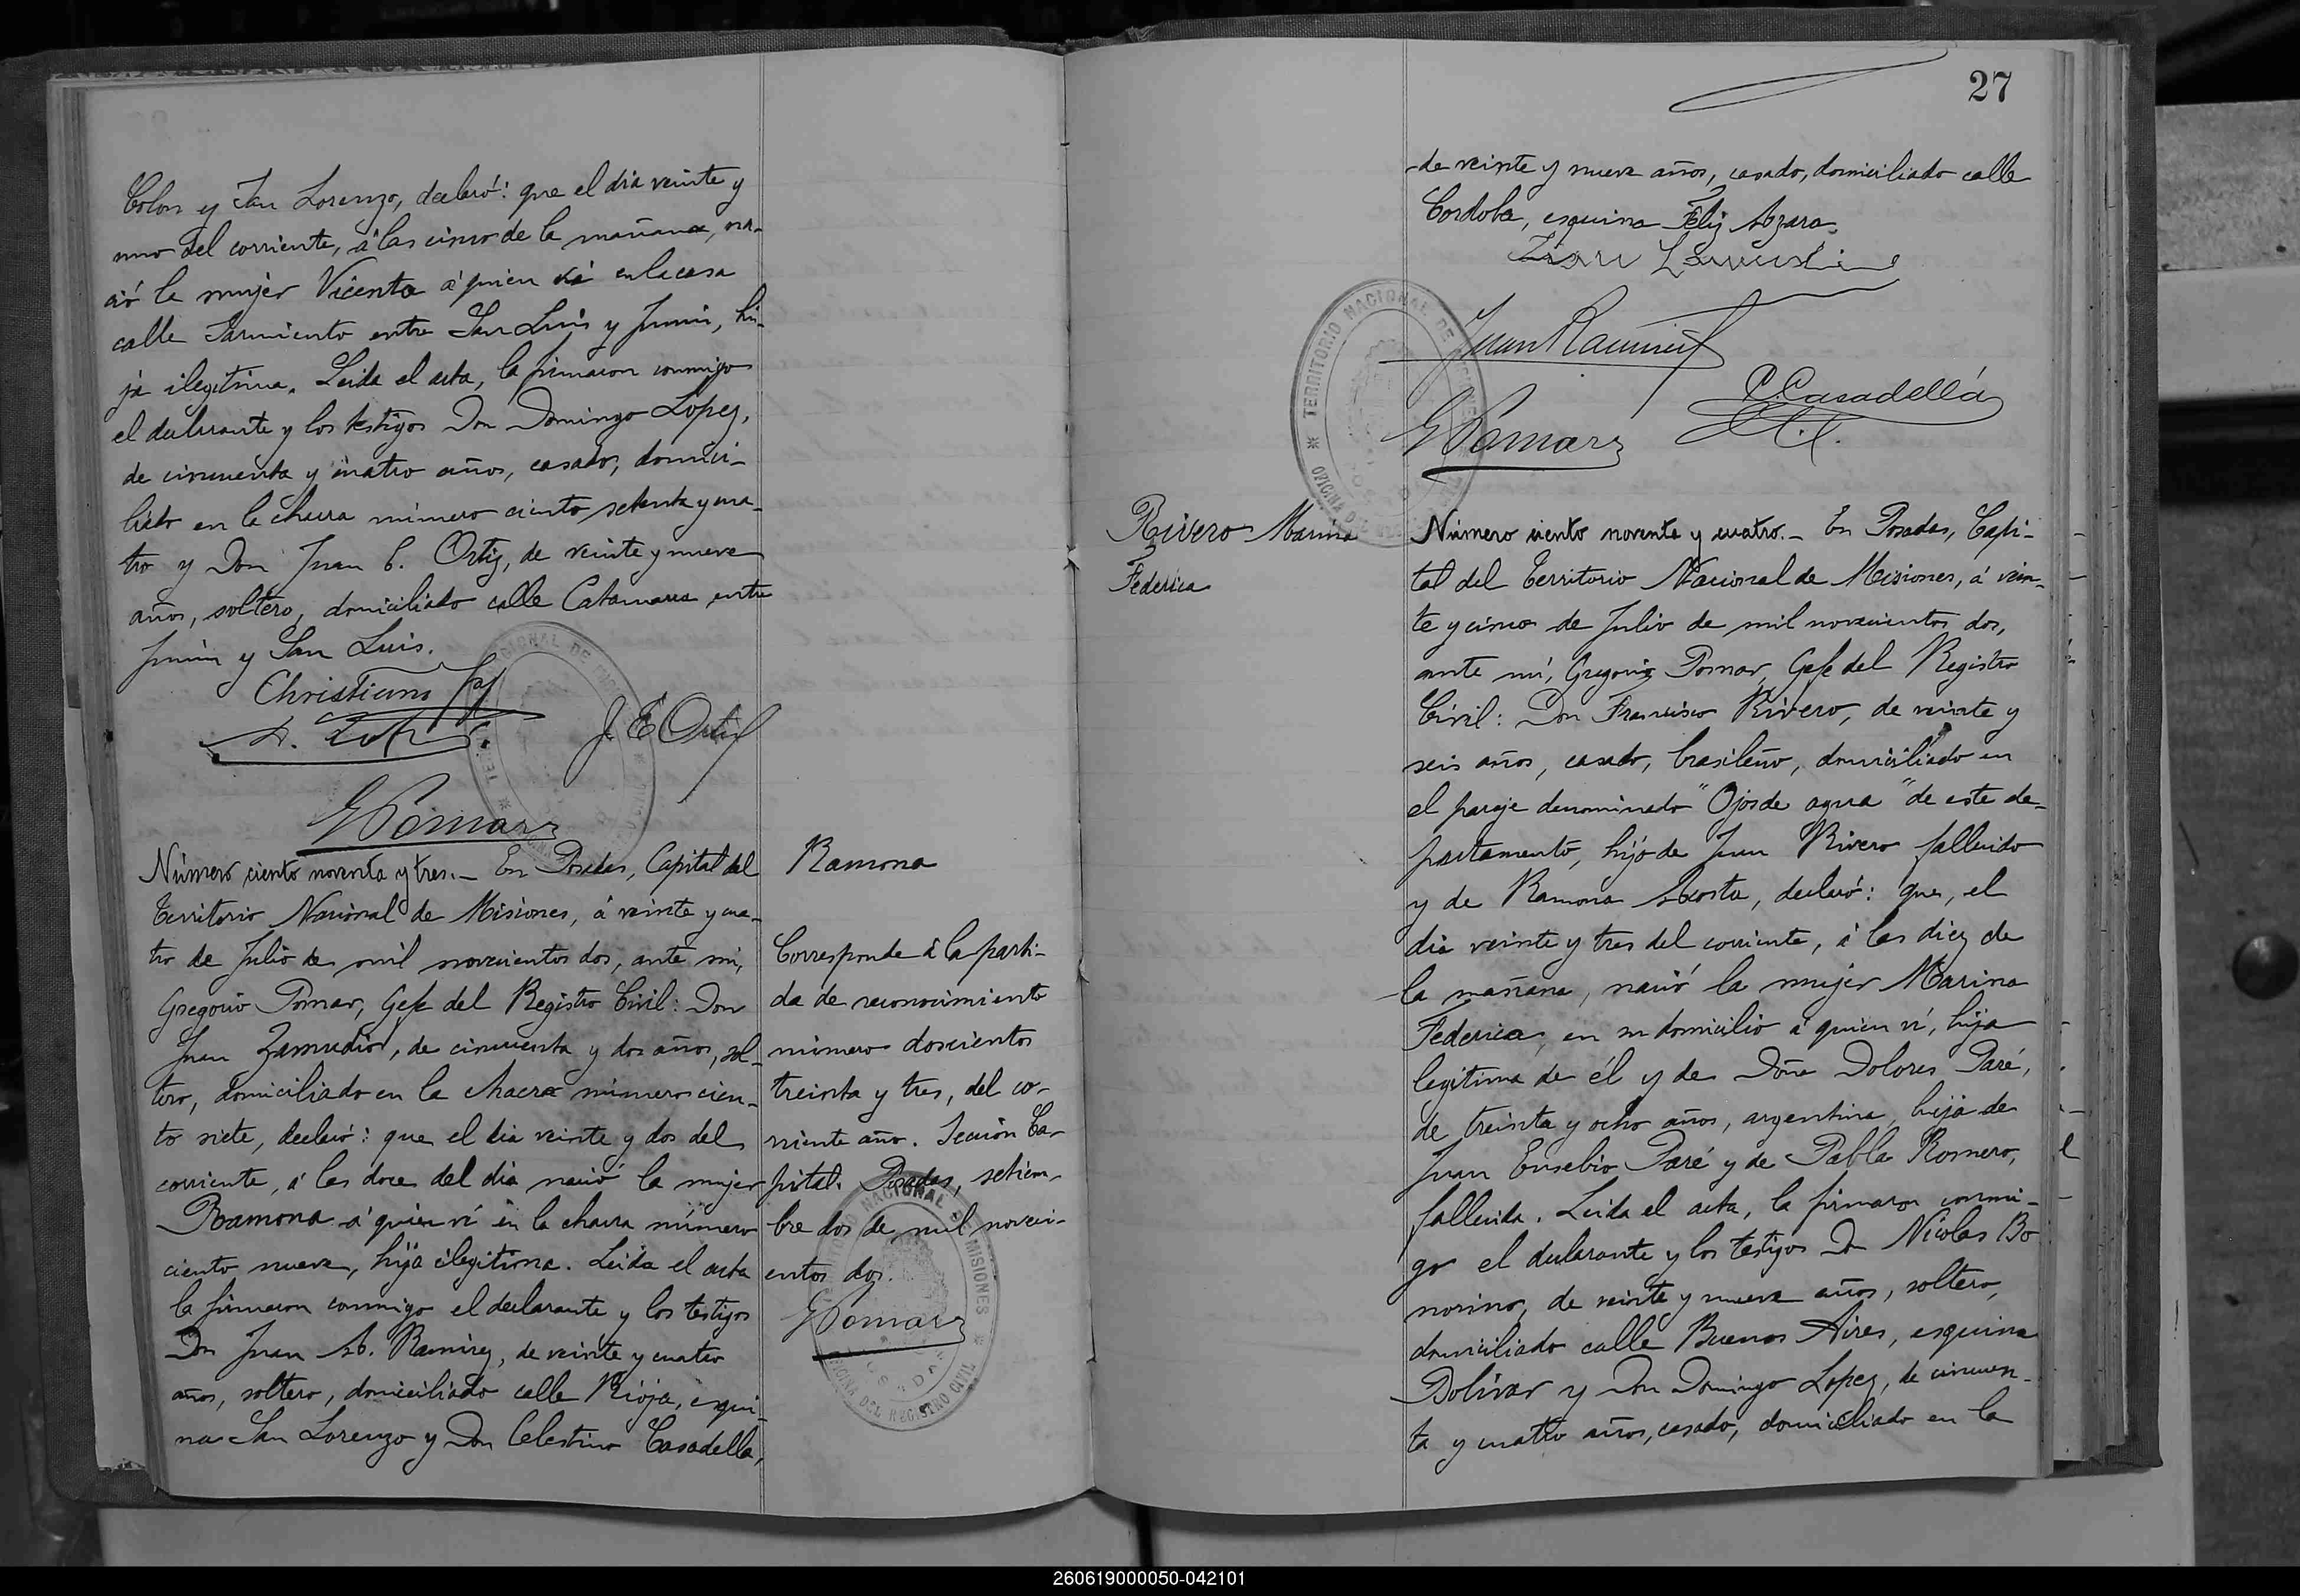 Colon y San Lorenzo, declaró: que el dia veinte y
uno del corriente, á las cinco de la mañana, na-
ció la mujer Vicenta á quien vi en la casa
calle Sarmiento entre San Luis y Junin, hi-
ja ilegitima. Leida el acta, la firmaron conmigo
el declarante y los testigos Don Domingo Lopez,
de cincuenta y cuatro años, casado, domici-
liado en la chacra número ciento setenta y cua-
tro y Don Juan E. Ortiz, de veinte y nueve
años, soltero, domiciliado calle Catamarca entre
Junin y San Luis.
Christiani
J. E. Ortiz
G Pomar
Número ciento noventa y tres.- En Posadas, Capital del
Territorio Nacional de Misiones, á veinte y cua-
tro de Julio de mil novecientos dos, ante mi,
Gregorio Pomar, Gefe del Registro Civil: Don
Juan Zamudio, de cincuenta y dos años, sol-
tero, domiciliado en la chacra número cien-
to siete, declaró: que el dia veinte y dos del
corriente, á las doce del dia nació la mujer
Ramona á quien vi en la chacra número
ciento nueve, hija ilegitima. Leida el acta
la firmaron conmigo el declarante y los testigos
Don Juan A. Ramirez, de veinte y cuatro
años, soltero, domiciliado calle Rioja, esqui-
na San Lorenzo y Don Celestino Casadella,
Ramona
Corresponde á la parti-
da de reconocimiento
número doscientos
treinta y tres, del co-
rriente año. Sección Ca-
pital. Posadas, setiem-
bre dos de mil noveci-
entos dos.
G Pomar
TERRITORIO NACIONAL DE MISIONES
OFICINA DEL REGISTRO CIVIL
POSADAS
27
de veinte y nueve años, casado, domiciliado calle
Cordoba, esquina Feliz Azara.
Juan Zamudio
Juan Ramirez
C. Casadellá
G Pomar
TERRITORIO NACIONAL DE MISIONES
Rivero Marina
Federica
Número ciento noventa y cuatro.- En Posadas, Capi-
tal del Territorio Nacional de Misiones, á vein-
te y cinco de Julio de mil novecientos dos,
ante mi, Gregorio Pomar, Gefe del Registro
Civil: Don Francisco Rivero, de veinte y
seis años, casado, brasileño, domiciliado en
el paraje denominado "Ojo de agua" de este de-
partamento, hijo de Juan Rivero fallecido
y de Ramona Acosta, declaró: que, el
dia veinte y tres del corriente, á las diez de
la mañana, nació la mujer Marina
Federica, en su domicilio á quien vi, hija
legitima de él y de Doña Dolores Paré,
de treinta y ocho años, argentina, hija de
Juan Eusebio Paré y de Pabla Romero,
fallecida. Leida el acta, la firmaron conmi-
go el declarante y los testigos Don Nicolas Bo
norino, de veinte y nueve años, soltero,
domiciliado calle Buenos Aires, esquina
Bolivar y Don Domingo Lopez, de cincuen-
ta y cuatro años, casado, domiciliado en la
260619000050-042101